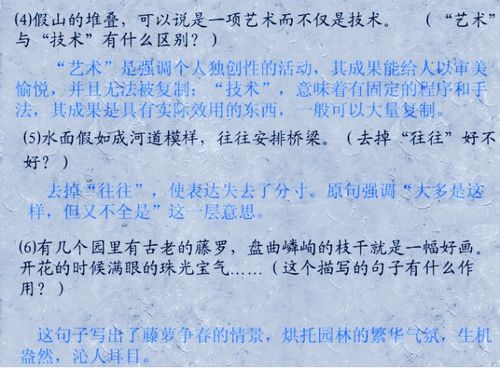 (4)假山的堆叠，可以说是一项艺术而不仅是技术。 （ “艺术”
与 “技术” 有什么区别？)
“艺术”是强调个人独创性的活动，其成果能给人以审美
愉悦，并且无法被复制；“技术”，意味着有固定的程序和手
法，其成果是具有实际效用的东西，一般可以大量复制。
(5)水面假如成河道模样，往往安排桥梁。（去掉“往往”好不
好？)
去掉“往往”，使表达失去了分寸。原句强调“大多是这
样，但又不全是”这一层意思。
(6)有几个园里有古老的藤罗，盘曲嶙峋的枝干就是一幅好画。
开花的时候满眼的珠光宝气……（这个描写的句子有什么作
用？)
这句子写出了藤萝争春的情景，烘托园林的繁华气氛，生机
盎然，沁人耳目。